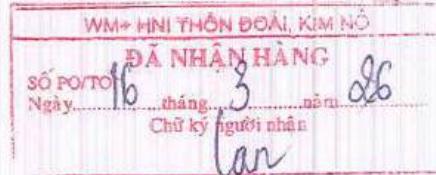 WM+ HNI THÔN ĐOÀI, KIM NỖ
ĐÃ NHẬN HÀNG
SỐ PO/TO
Ngày 16 tháng 3 năm 26
Chữ ký người nhận
Lan